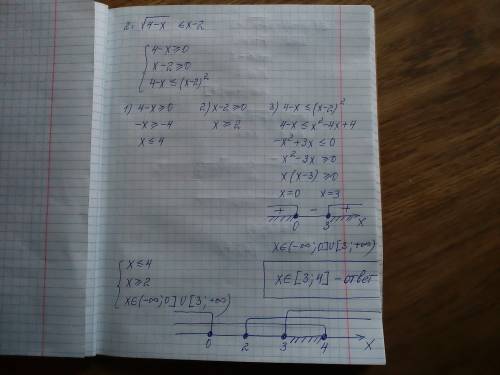 2. √4-x ≤ x-2
{ 4-x ≥ 0
x-2 ≥ 0
4-x ≤ (x-2)²
1) 4-x ≥ 0
-x ≥ -4
x ≤ 4
2) x-2 ≥ 0
x ≥ 2
3) 4-x ≤ (x-2)²
4-x ≤ x²-4x+4
-x²+3x ≤ 0
x²-3x ≥ 0
x(x-3) ≥ 0
x=0 x=3
+ - +
0 3 x
x∈(-∞;0]∪[3;+∞)
{ x ≤ 4
x ≥ 2
x∈(-∞;0]∪[3;+∞)
x∈[3;4] - ответ
0 2 3 4 x